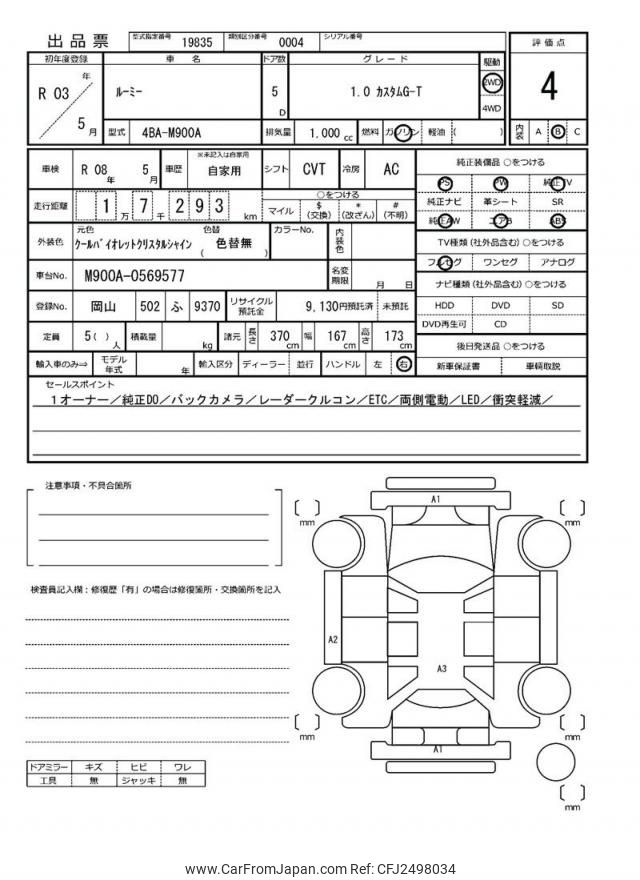 出品票 型式指定番号 19835 類別区分番号 0004 シリアル番号
初年度登録 車名 ドア数 グレード 駆動 評価点
R 03 年 5 月 ルーミー 5 D 1.0 カスタムG-T 2WD 4WD 4
型式 4BA-M900A 排気量 1.000 cc 燃料 ガソリン 軽油 ( ) 内装 A B C
車検 R 08 年 5 月 車歴 ※未記入は自家用 自家用 シフト CVT 冷房 AC
純正装備品 ○をつける
PS PW 純正TV
走行距離 1 万 7 千 2 9 3 km ○をつける
マイル $ (交換) * (改ざん) # (不明)
純正ナビ 革シート SR
純正AW エアB ABS
外装色 元色 クールバイオレットクリスタルシャイン 色替 ( 色替無 ) カラーNo. 内装色
TV種類 (社外品含む) ○をつける
フルセグ ワンセグ アナログ
車台No. M900A-0569577 名変期限 月 日
ナビ種類 (社外品含む) ○をつける
登録No. 岡山 502 ふ 9370 リサイクル預託金 9,130円預託済 未預託
HDD DVD SD
DVD再生可 CD
定員 5( ) 人 積載量 kg 諸元 長さ 370 cm 幅 167 cm 高さ 173 cm
後日発送品 ○をつける
輸入車のみ⇒ モデル年式 年 輸入区分 ディーラー 並行 ハンドル 左 右
新車保証書 車輌取説
セールスポイント
1オーナー/純正DO/バックカメラ/レーダークルコン/ETC/両側電動/LED/衝突軽減/
注意事項・不具合箇所
検査員記入欄：修復歴「有」の場合は修復箇所・交換箇所を記入
A1
mm
mm
A2
A3
mm
mm
A1
mm
ドアミラー キズ ヒビ ワレ
工具 無 ジャッキ 無
www.CarFromJapan.com Ref: CFJ2498034